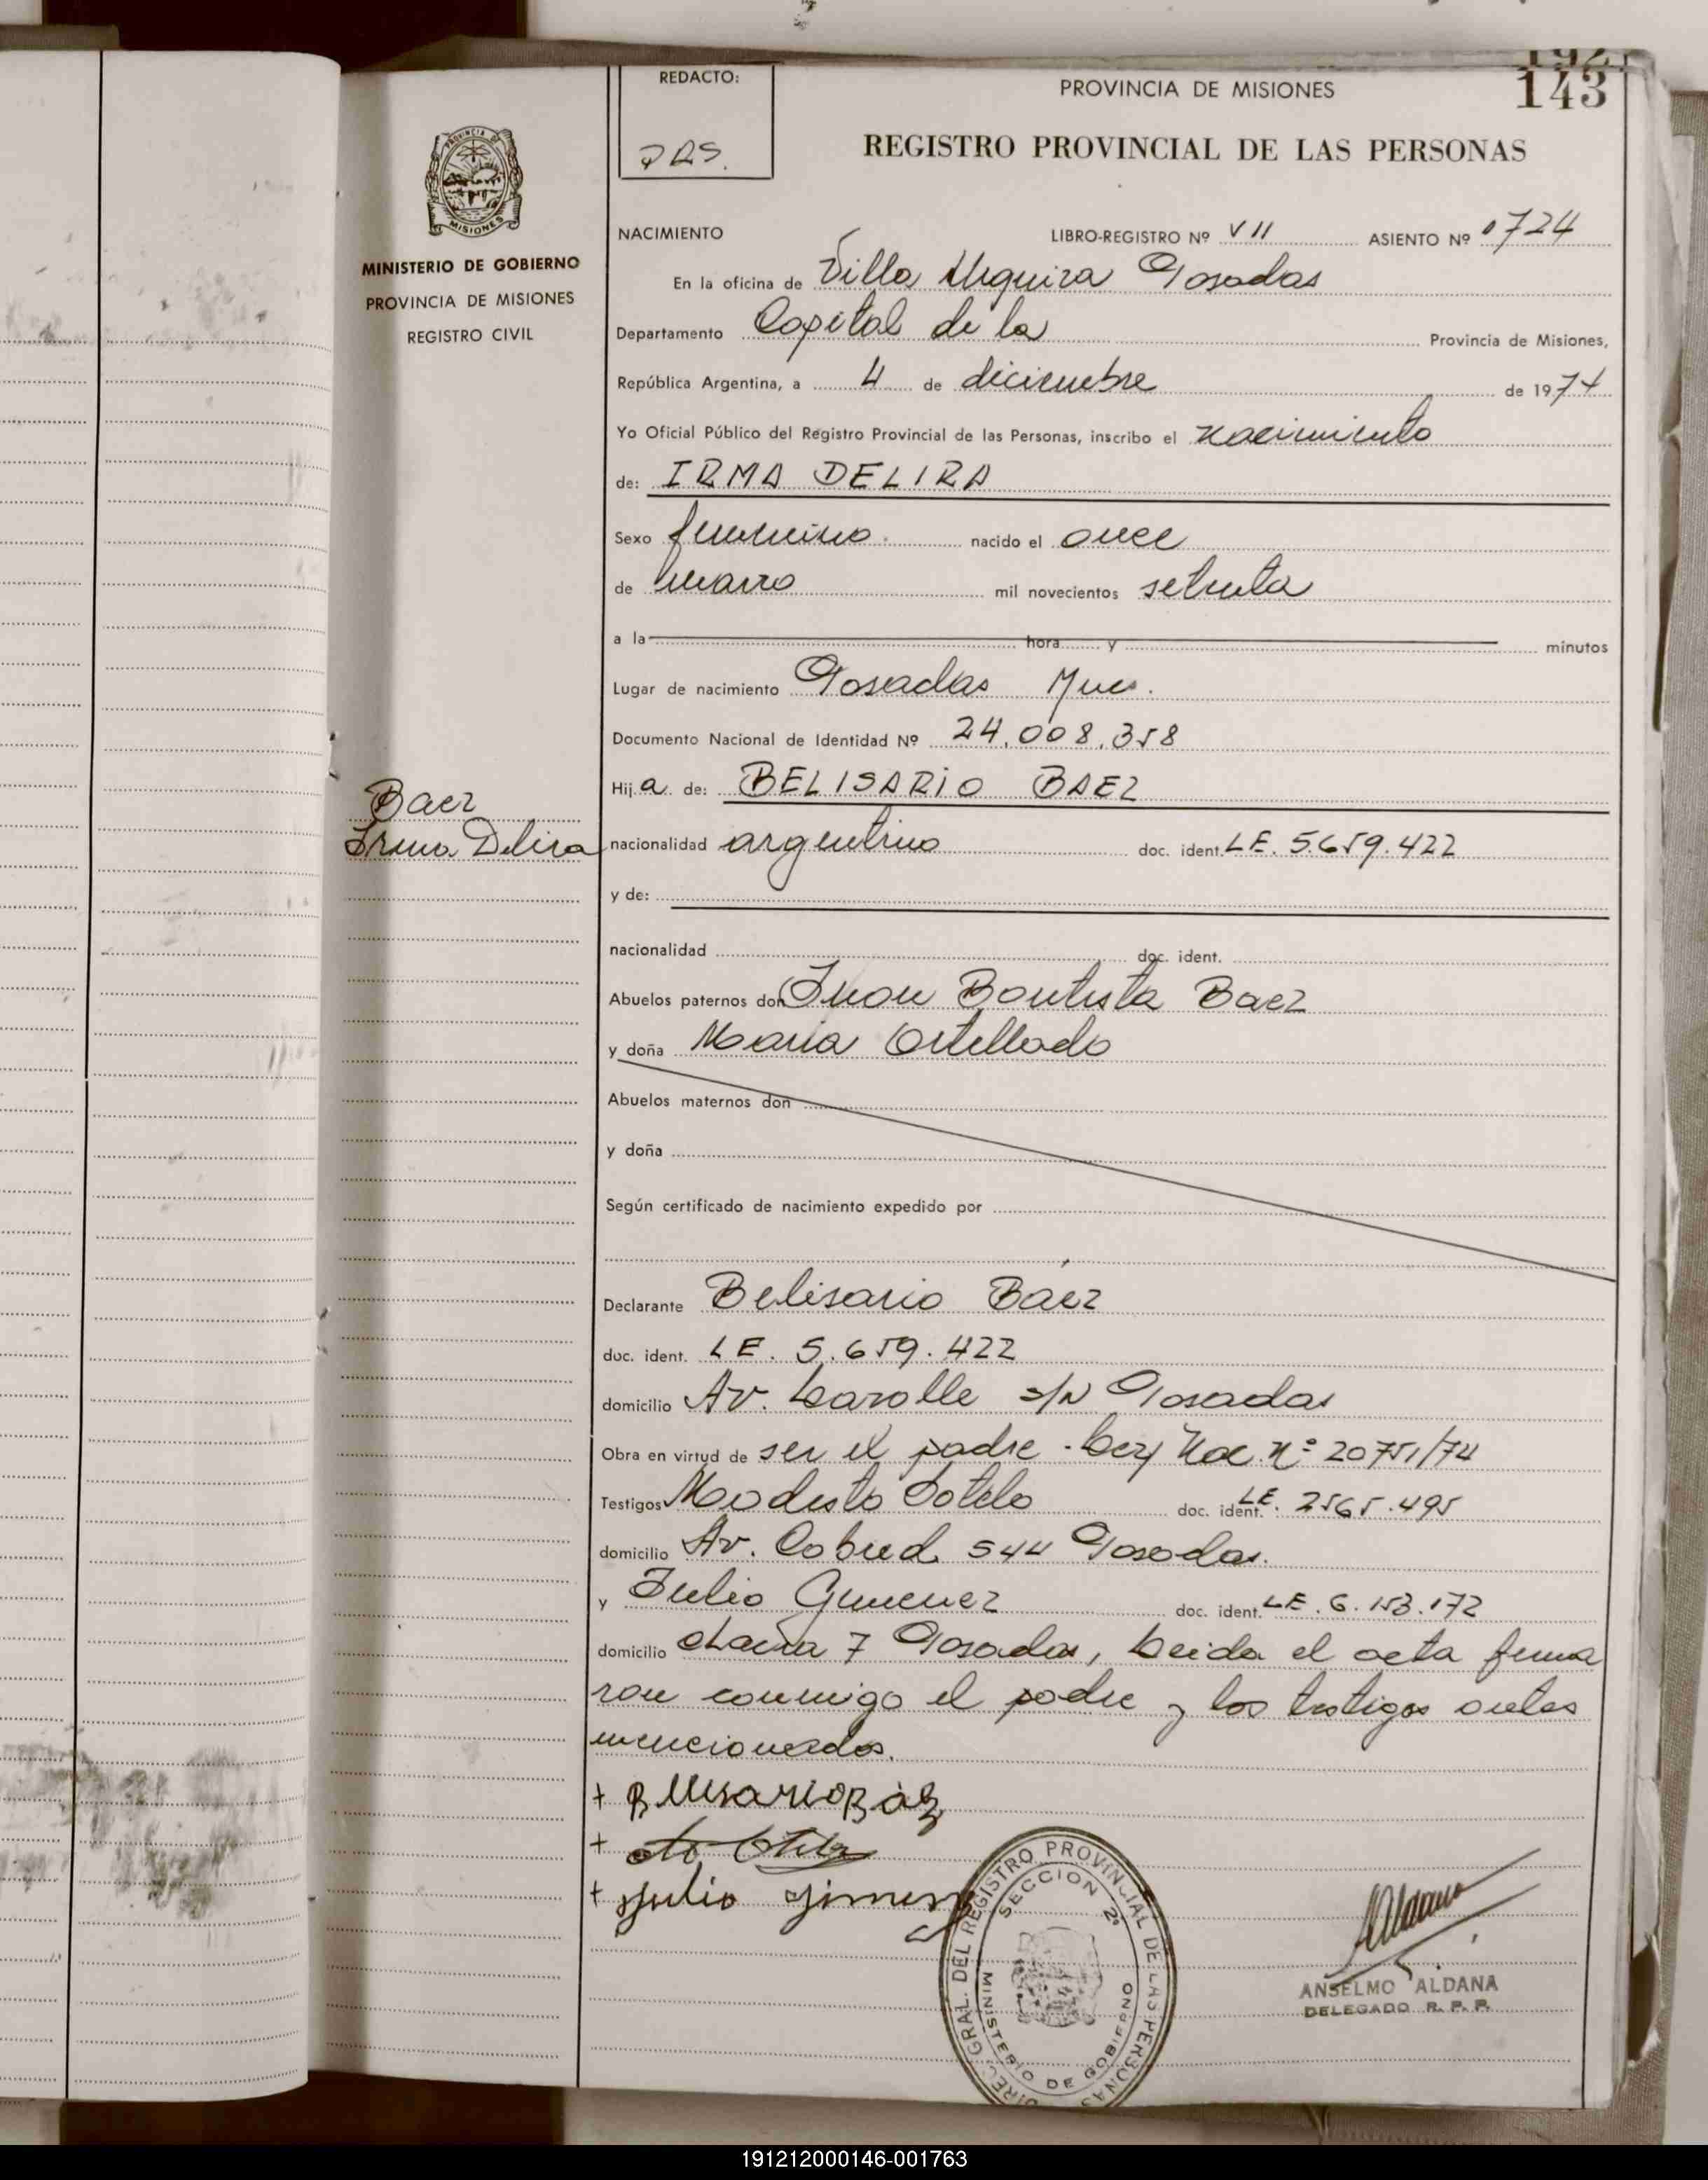 192
143
REDACTO:
PROVINCIA DE MISIONES
REGISTRO PROVINCIAL DE LAS PERSONAS
PROVINCIA DE
MISIONES
MINISTERIO DE GOBIERNO
PROVINCIA DE MISIONES
REGISTRO CIVIL
NACIMIENTO LIBRO-REGISTRO Nº VII ASIENTO Nº 0724
En la oficina de Villa Urquiza Posadas
Departamento Capital de la Provincia de Misiones,
República Argentina, a 4 de diciembre de 1974
Yo Oficial Público del Registro Provincial de las Personas, inscribo el nacimiento
de: IRMA DELIRA
Sexo femenino. nacido el once
de marzo mil novecientos setenta
a la hora y minutos
Lugar de nacimiento Posadas Mnes.
Documento Nacional de Identidad Nº 24.008.358
Hija de: BELISARIO BAEZ
Baez
Irma Delira
nacionalidad argentino doc. ident. LE. 5.659.422
y de:
nacionalidad doc. ident.
Abuelos paternos don Juan Bautista Baez
y doña Maria Ortellado
Abuelos maternos don
y doña
Según certificado de nacimiento expedido por
Declarante Belisario Báez
doc. ident. LE. 5.659.422
domicilio Av. Lavalle s/N Posadas
Obra en virtud de ser el padre - Ley Nac. nº 20751/74
Testigos Modesto Sotelo doc. ident. LE. 2565.495
domicilio Av. Cabred 544 Posadas.
y Julio Gimenez doc. ident. LE. 6.153.172
domicilio chacra 7 Posadas, Leida el acta firma
ron conmigo el padre y los testigos antes
mencionados.
+ Belisario Baez
+
+ Julio Jimenez
DIREC. GRAL. DEL REGISTRO PROVINCIAL DE LAS PERSONAS
SECCION 2ª
MINISTERIO DE GOBIERNO
ANSELMO ALDANA
DELEGADO R. P. P.
191212000146-001763